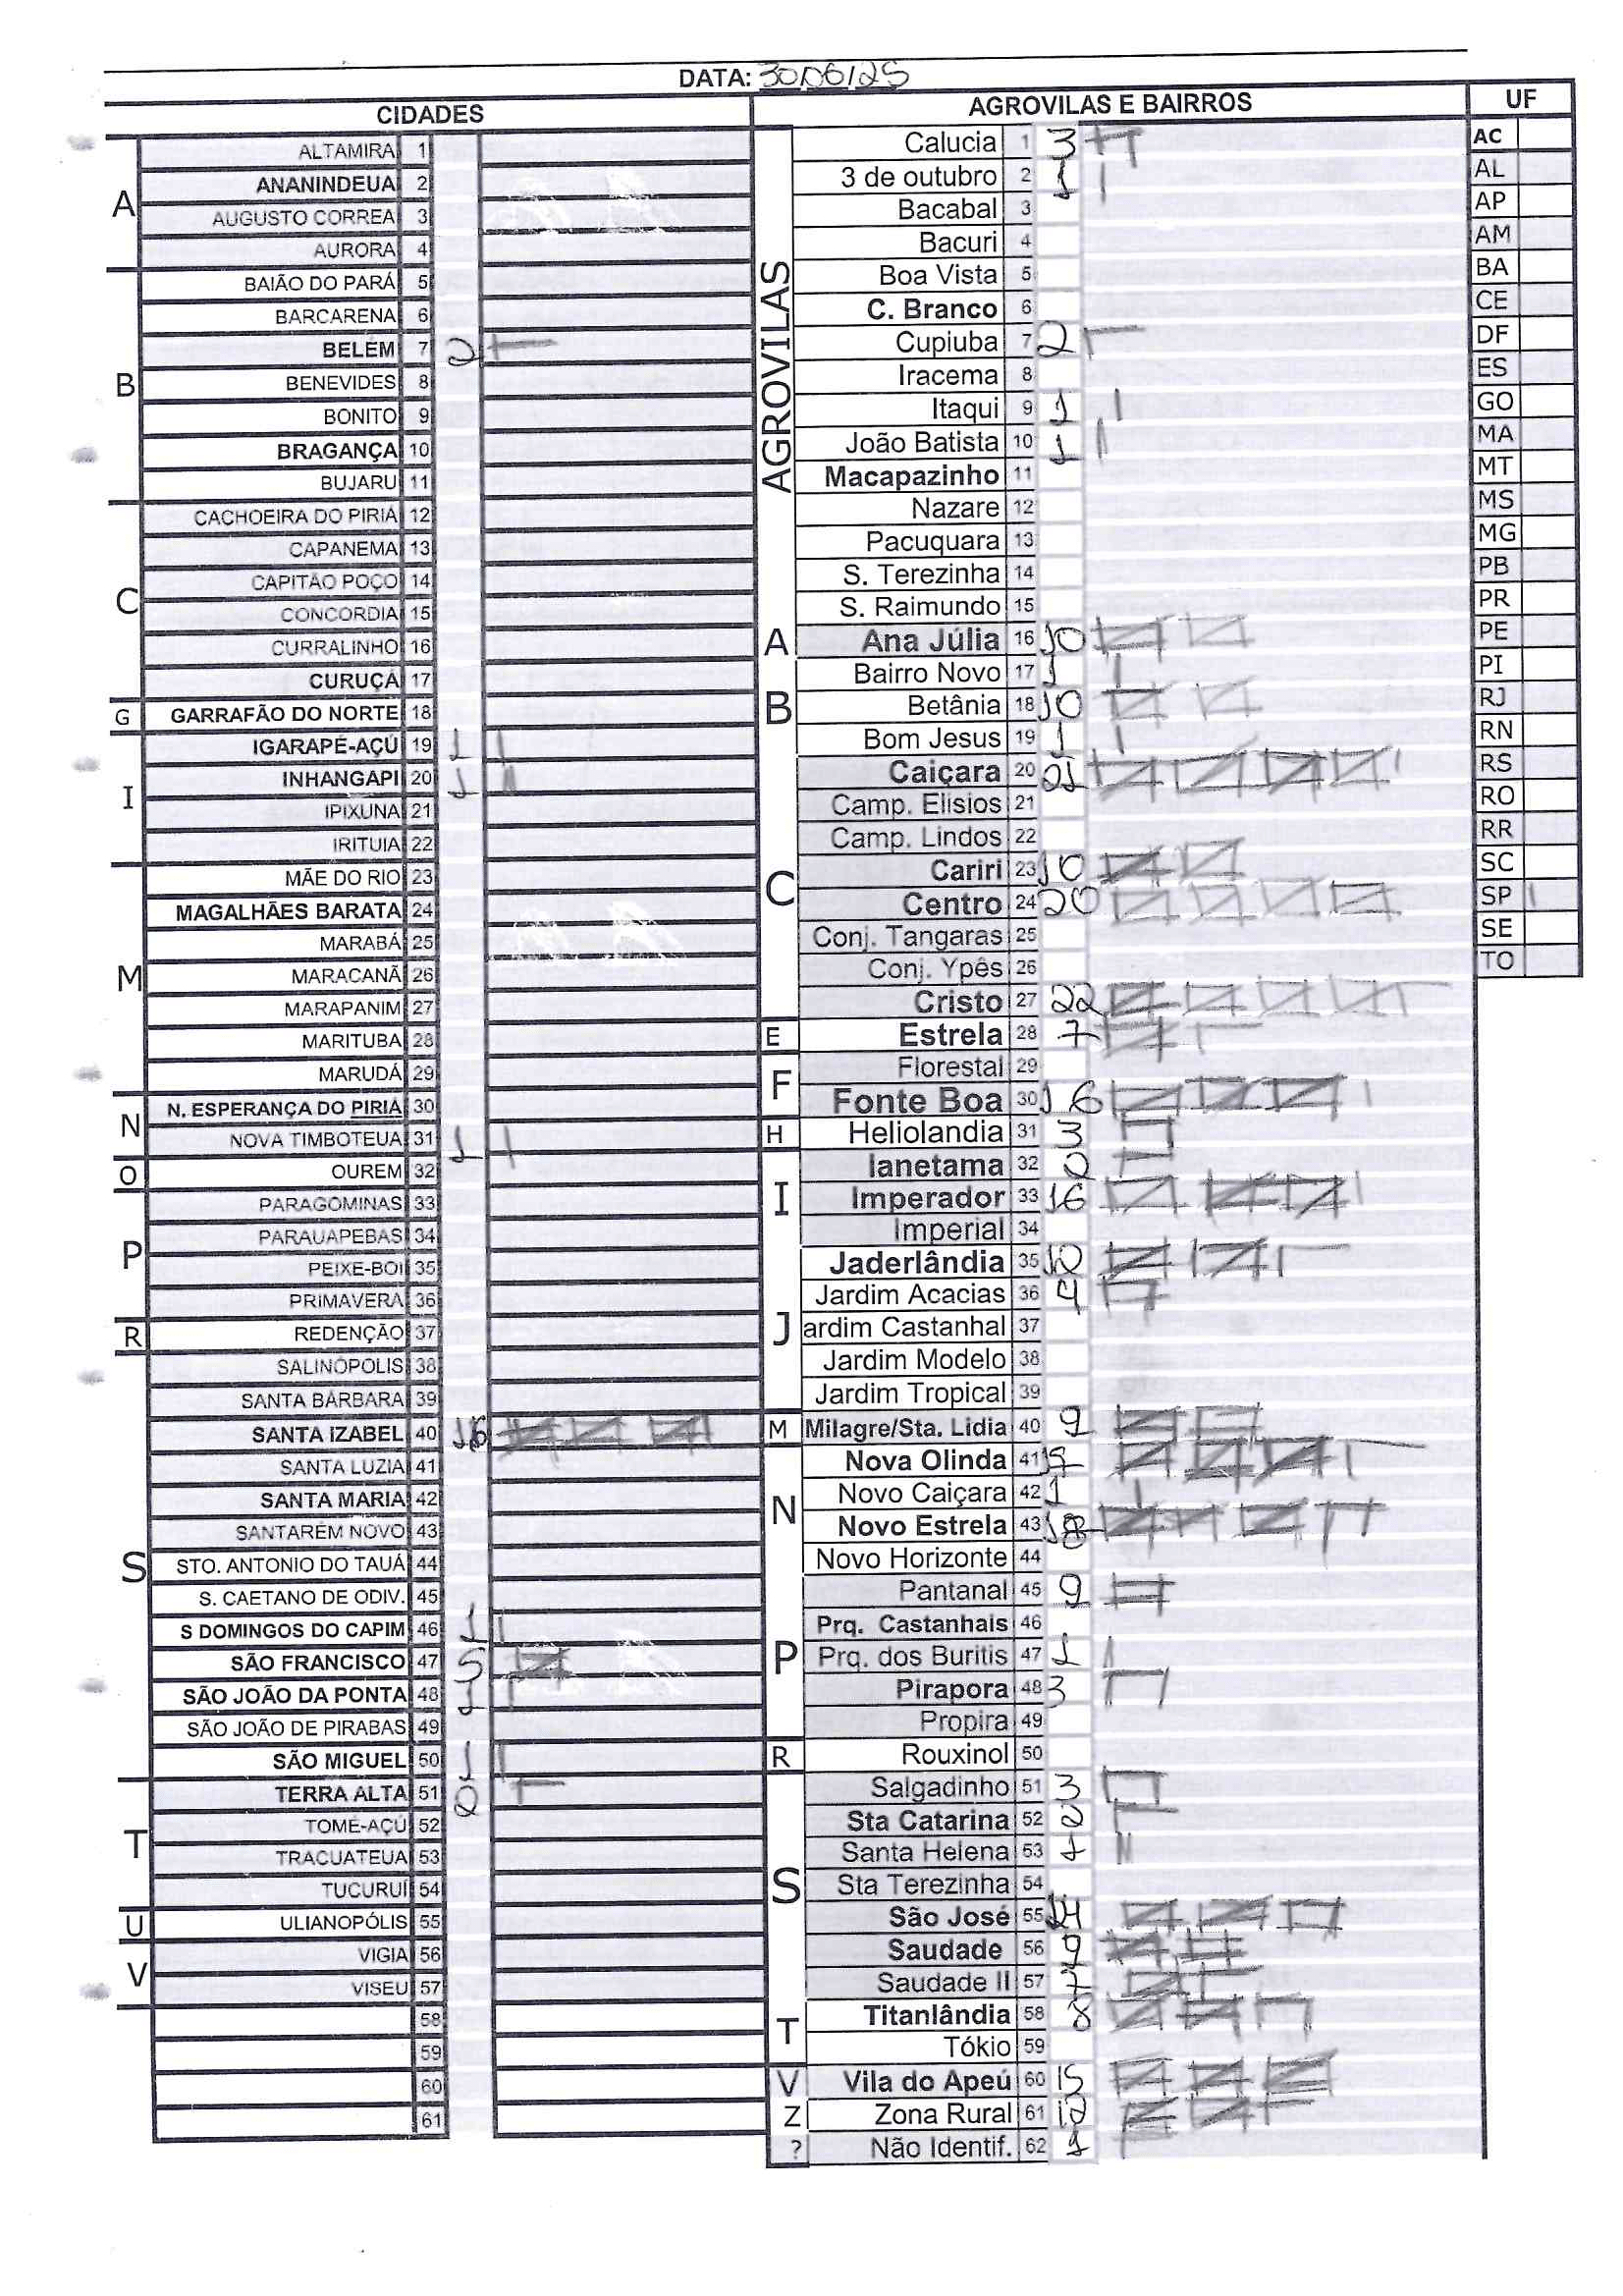 DATA: 30/06/25
CIDADES
A
ALTAMIRA 1
ANANINDEUA 2
AUGUSTO CORREA 3
AURORA 4
B
BAIÃO DO PARÁ 5
BARCARENA 6
BELÉM 7 2
BENEVIDES 8
BONITO 9
BRAGANÇA 10
BUJARU 11
C
CACHOEIRA DO PIRIÁ 12
CAPANEMA 13
CAPITÃO POÇO 14
CONCORDIA 15
CURRALINHO 16
CURUÇÁ 17
G
GARRAFÃO DO NORTE 18
I
IGARAPÉ-AÇÚ 19 1
INHANGAPI 20 1
IPIXUNA 21
IRITUIA 22
M
MÃE DO RIO 23
MAGALHÃES BARATA 24
MARABÁ 25
MARACANÃ 26
MARAPANIM 27
MARITUBA 28
MARUDÁ 29
N
N. ESPERANÇA DO PIRIÁ 30
NOVA TIMBOTEUA 31 1
O
OUREM 32
P
PARAGOMINAS 33
PARAUAPEBAS 34
PEIXE-BOI 35
PRIMAVERA 36
R
REDENÇÃO 37
S
SALINÓPOLIS 38
SANTA BÁRBARA 39
SANTA IZABEL 40 16
SANTA LUZIA 41
SANTA MARIA 42
SANTARÉM NOVO 43
STO. ANTONIO DO TAUÁ 44
S. CAETANO DE ODIV. 45
S DOMINGOS DO CAPIM 46 1
SÃO FRANCISCO 47 5
SÃO JOÃO DA PONTA 48 1
SÃO JOÃO DE PIRABAS 49
SÃO MIGUEL 50 1
T
TERRA ALTA 51 2
TOMÉ-AÇÚ 52
TRACUATEUA 53
TUCURUI 54
U
ULIANOPÓLIS 55
V
VIGIA 56
VISEU 57
58
59
60
61
AGROVILAS E BAIRROS
AGROVILAS
Calucia 1 3
3 de outubro 2 1
Bacabal 3
Bacuri 4
Boa Vista 5
C. Branco 6
Cupiuba 7 2
Iracema 8
Itaqui 9 1
João Batista 10 1
Macapazinho 11
Nazare 12
Pacuquara 13
S. Terezinha 14
S. Raimundo 15
A
Ana Júlia 16 10
B
Bairro Novo 17 1
Betânia 18 10
Bom Jesus 19 1
C
Caiçara 20 21
Camp. Elisios 21
Camp. Lindos 22
Cariri 23 10
Centro 24 20
Conj. Tangaras 25
Conj. Ypês 26
Cristo 27 22
E
Estrela 28 7
F
Florestal 29
Fonte Boa 30 16
H
Heliolandia 31 3
I
Ianetama 32 2
Imperador 33 16
Imperial 34
J
Jaderlândia 35 12
Jardim Acacias 36 4
ardim Castanhal 37
Jardim Modelo 38
Jardim Tropical 39
M
Milagre/Sta. Lidia 40 9
N
Nova Olinda 41
Novo Caiçara 42 1
Novo Estrela 43 18
Novo Horizonte 44
P
Pantanal 45 9
Prq. Castanhais 46
Prq. dos Buritis 47 1
Pirapora 48 3
Propira 49
R
Rouxinol 50
S
Salgadinho 51 3
Sta Catarina 52 2
Santa Helena 53 1
Sta Terezinha 54
São José 55 14
Saudade 56 9
Saudade II 57 7
T
Titanlândia 58 8
Tókio 59
V
Vila do Apeú 60 15
Z
Zona Rural 61 12
?
Não Identif. 62
UF
AC
AL
AP
AM
BA
CE
DF
ES
GO
MA
MT
MS
MG
PB
PR
PE
PI
RJ
RN
RS
RO
RR
SC
SP 1
SE
TO